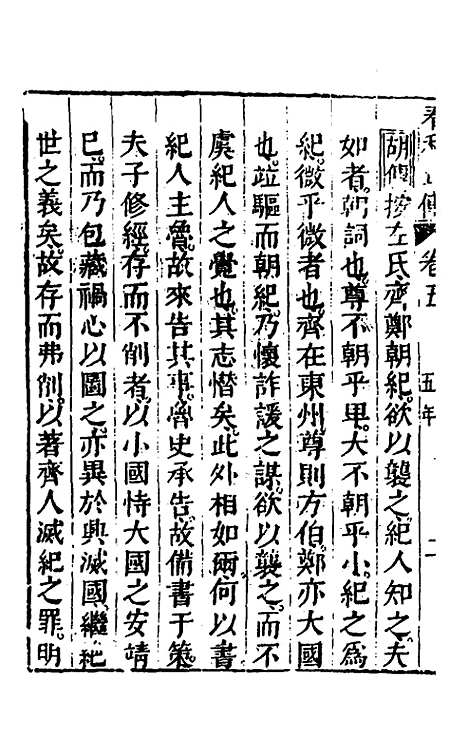 春秋正傳 卷五 五年 二
胡傳按左氏齊鄭朝紀欲以襲之紀人知之夫
如者朝詞也尊不朝乎卑大不朝乎小紀之爲
紀微乎微者也齊在東州尊則方伯鄭亦大國
也竝驅而朝紀乃懷詐諼之謀欲以襲之而不
虞紀人之覺也其志憯矣此外相如爾何以書
紀人主魯故來告其事魯史承告故備書于策
夫子修經存而不削者以小國恃大國之安靖
已而乃包藏禍心以圖之亦異於興滅國繼絕
世之義矣故存而弗削以著齊人滅紀之罪明